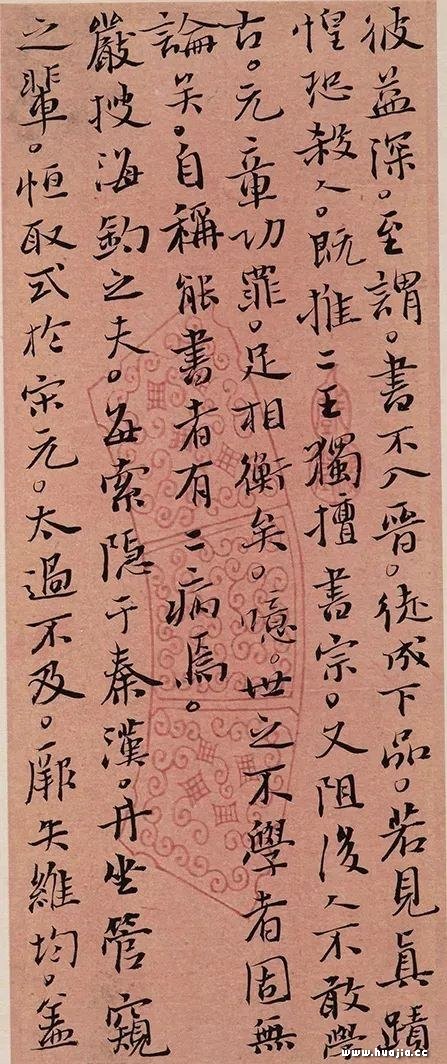 彼益深。至謂。書不入晉。徒成下品。若見眞蹟
惶恐殺人。既推二王獨擅書宗。又阻後人不敢學
古。元章功罪。足相衡矣。噫。世之不學者固無
論矣。自稱能書者有二病焉。
嚴搜海釣之夫。每索隱于秦漢。井坐管窺
之輩。恒取式於宋元。太過不及。厥失維均。蓋
www.huajia.cc